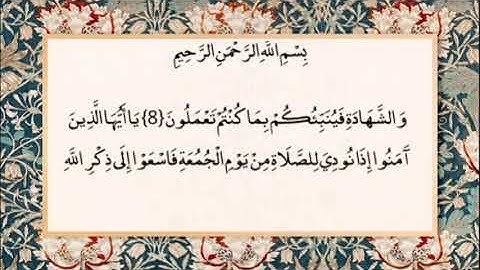 بِسْمِ اللَّهِ الرَّحْمَنِ الرَّحِيمِ
وَالشَّهَادَةِ فَيُنَبِّئُكُمْ بِمَا كُنْتُمْ تَعْمَلُونَ {8} يَا أَيُّهَا الَّذِينَ
آمَنُوا إِذَا نُودِيَ لِلصَّلَاةِ مِنْ يَوْمِ الْجُمُعَةِ فَاسْعَوْا إِلَى ذِكْرِ اللَّهِ